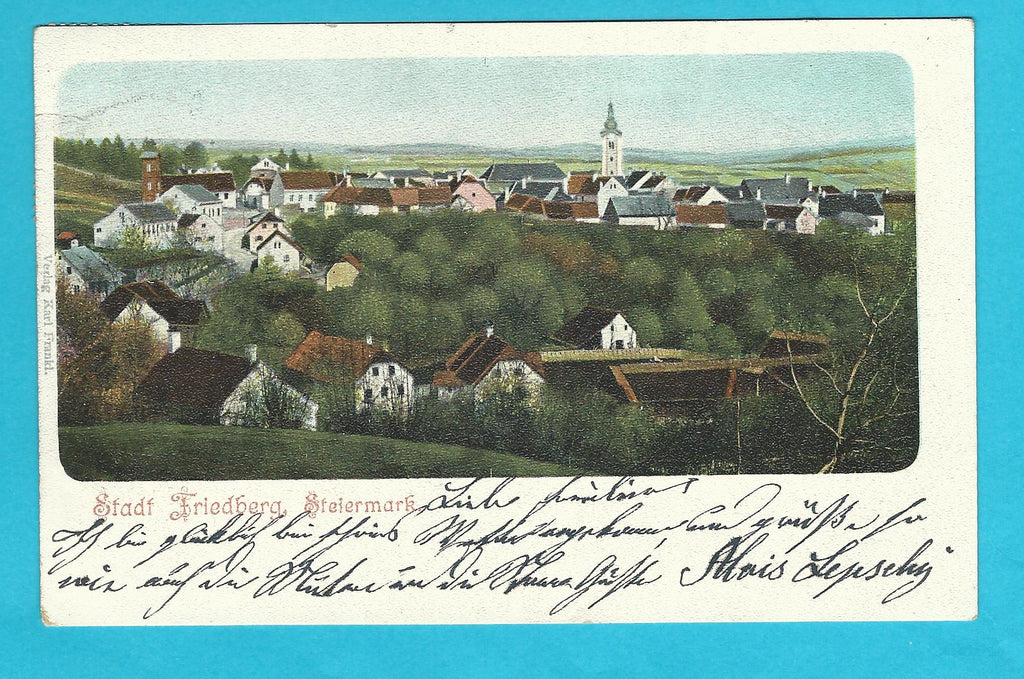 Verlag Karl Frankl.
Stadt Friedberg, Steiermark.
Liebe Familie!
Ich bin glücklich bei schönem Wetter angekommen, und grüße so
wie auch die Mutter die Alois Lepschy